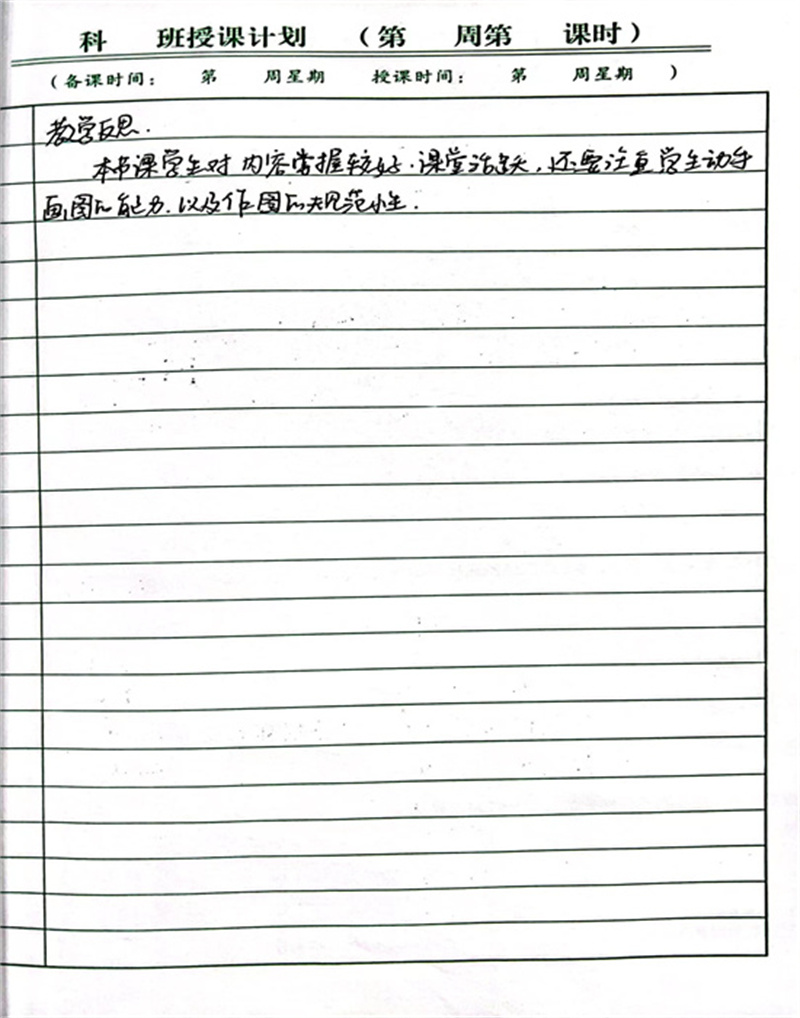 科 班授课计划 （第 周第 课时）
（备课时间： 第 周星期 授课时间： 第 周星期 ）
教学反思.
本节课学生对内容掌握较好.课堂活跃,还要注重学生动手
画图的能力.以及作图的规范性.